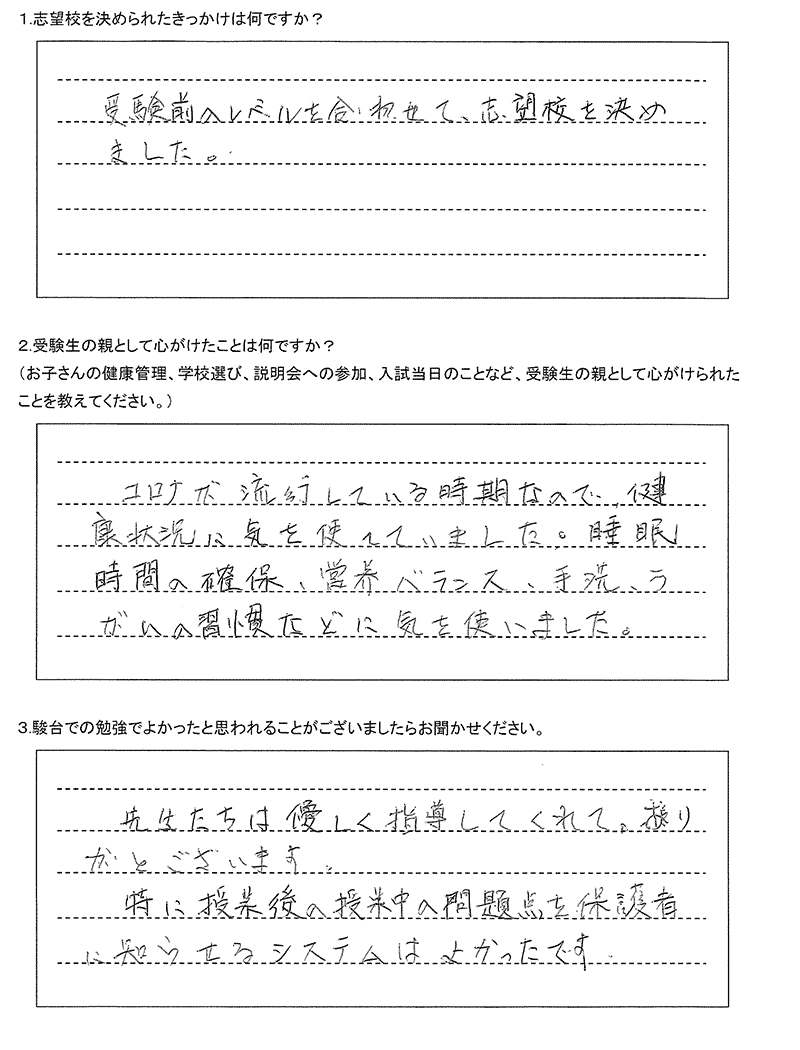 １.志望校を決められたきっかけは何ですか？
受験前のレベルを合わせて、志望校を決め
ました。
２.受験生の親として心がけたことは何ですか？
（お子さんの健康管理、学校選び、説明会への参加、入試当日のことなど、受験生の親として心がけられた
ことを教えてください。）
コロナが流行している時期なので、健
康状況に気を使てていました。睡眠
時間の確保、営养バランス、手洗、う
がいの習慣などに気を使いました。
３.駿台での勉強でよかったと思われることがございましたらお聞かせください。
先生たちは優しく指導してくれて、
がとございます。
特に授業後の授業中の問題点を保護者
に知らせるシステムはよかったです